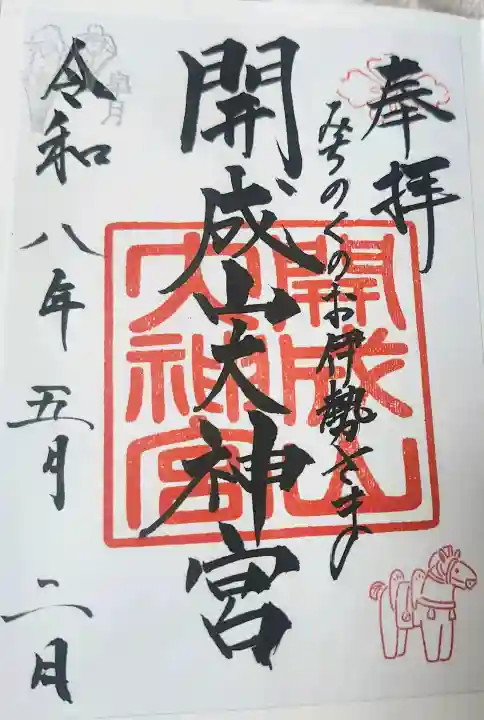 奉拝
みちのくのお伊勢さま
開成山大神宮
開成山大神宮
令和八年五月二日
皐月